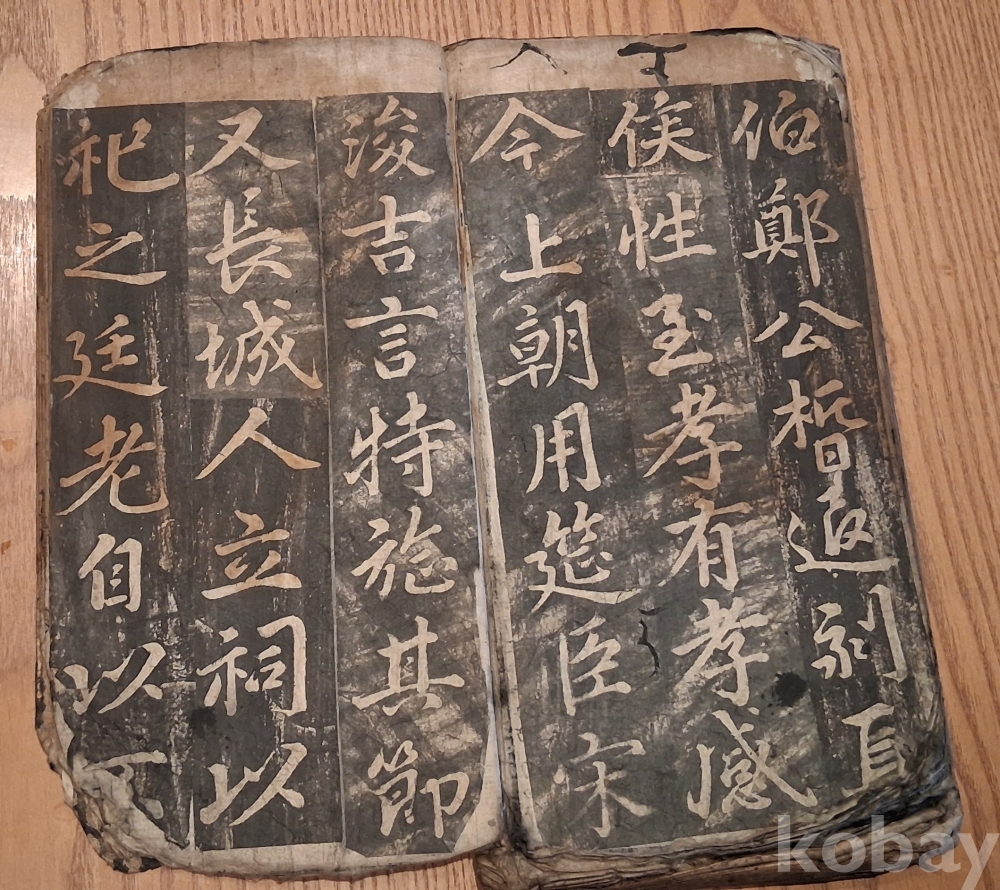 伯鄭公晳退
侯性至孝有孝感
今上朝用筵臣宋
浚吉言特旌其節
又長城人立祠以
祀之廷老自以
kobay